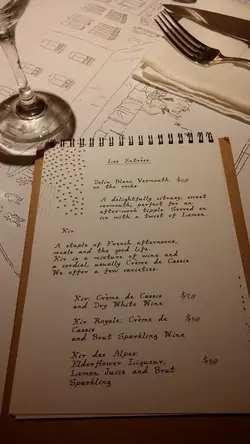 Les Entrées
Dolin Blanc Vermouth
on the rocks
A delightfully citrusy, sweet
vermouth, perfect for an
after-work tipple. Served on
ice with a twist of Lemon.
Kir
A staple of French afternoons,
meals and the good life.
Kir is a mixture of wine and
a cordial, usually Crème de Cassis.
We offer a few varieties:
Kir: Crème de Cassis
and Dry White Wine
Kir Royale: Crème de
Cassis
and Brut Sparkling Wine
Kir des Alpes:
Elderflower Liqueur,
Lemon Juice and Brut
Sparkling